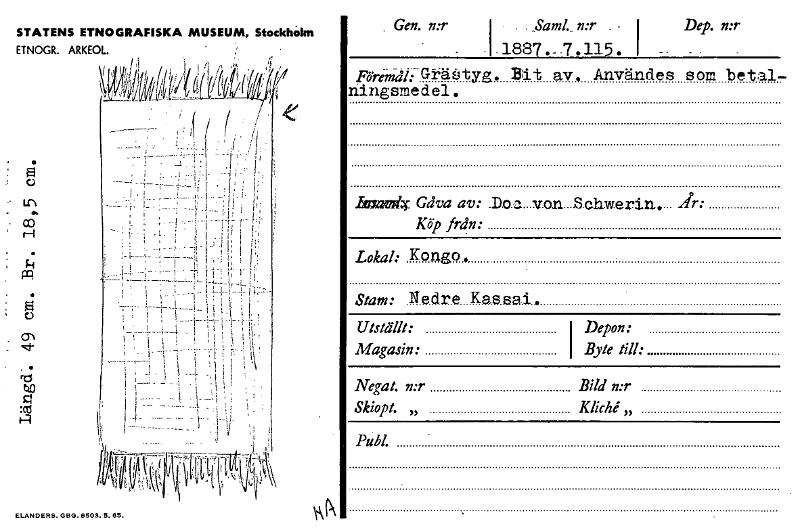 STATENS ETNOGRAFISKA MUSEUM, Stockholm
ETNOGR. ARKEOL.
Längd. 49 cm. Br. 18,5 cm.
ELANDERS. GBG. 8503. 5. 65.
NA
Gen. n:r Saml. n:r Dep. n:r
1887. 7.115.
Föremål: Grästyg. Bit av. Användes som betal-
ningsmedel.
Gåva av: Doc von Schwerin. År:
Köp från:
Lokal: Kongo.
Stam: Nedre Kassai.
Utställt: Depon:
Magasin: Byte till:
Negat. n:r Bild n:r
Skiopt. „ Kliché „
Publ.